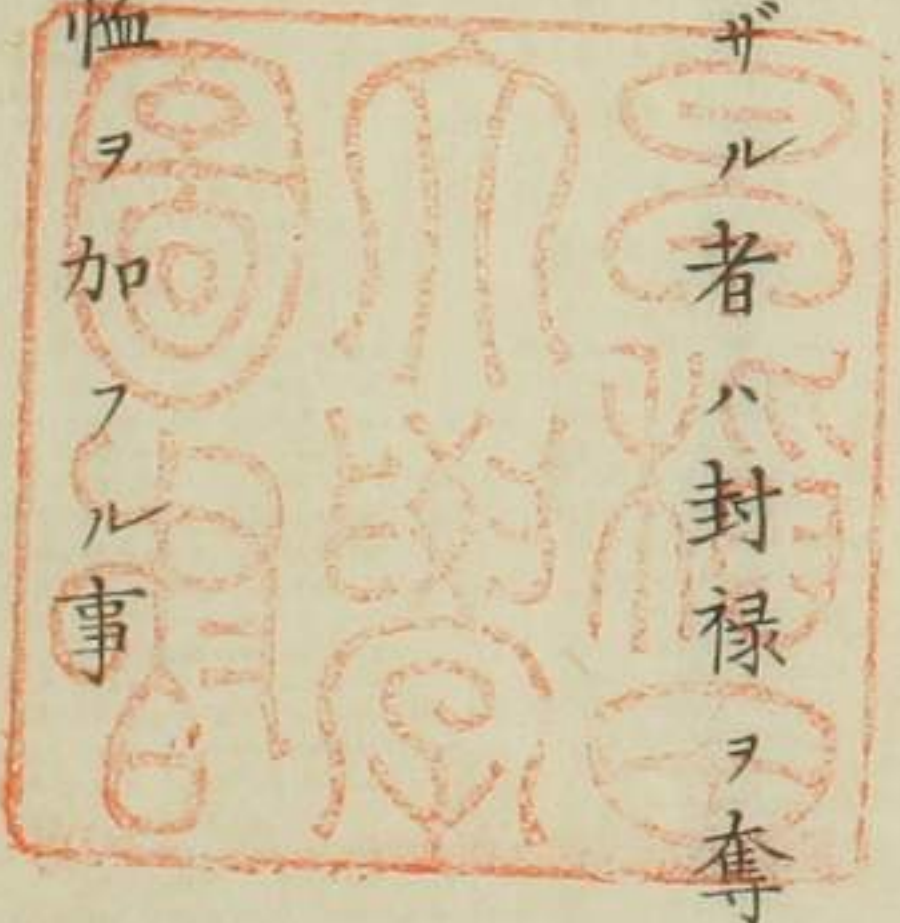 ザル者ハ封禄ヲ奪
恤ヲ加フル事